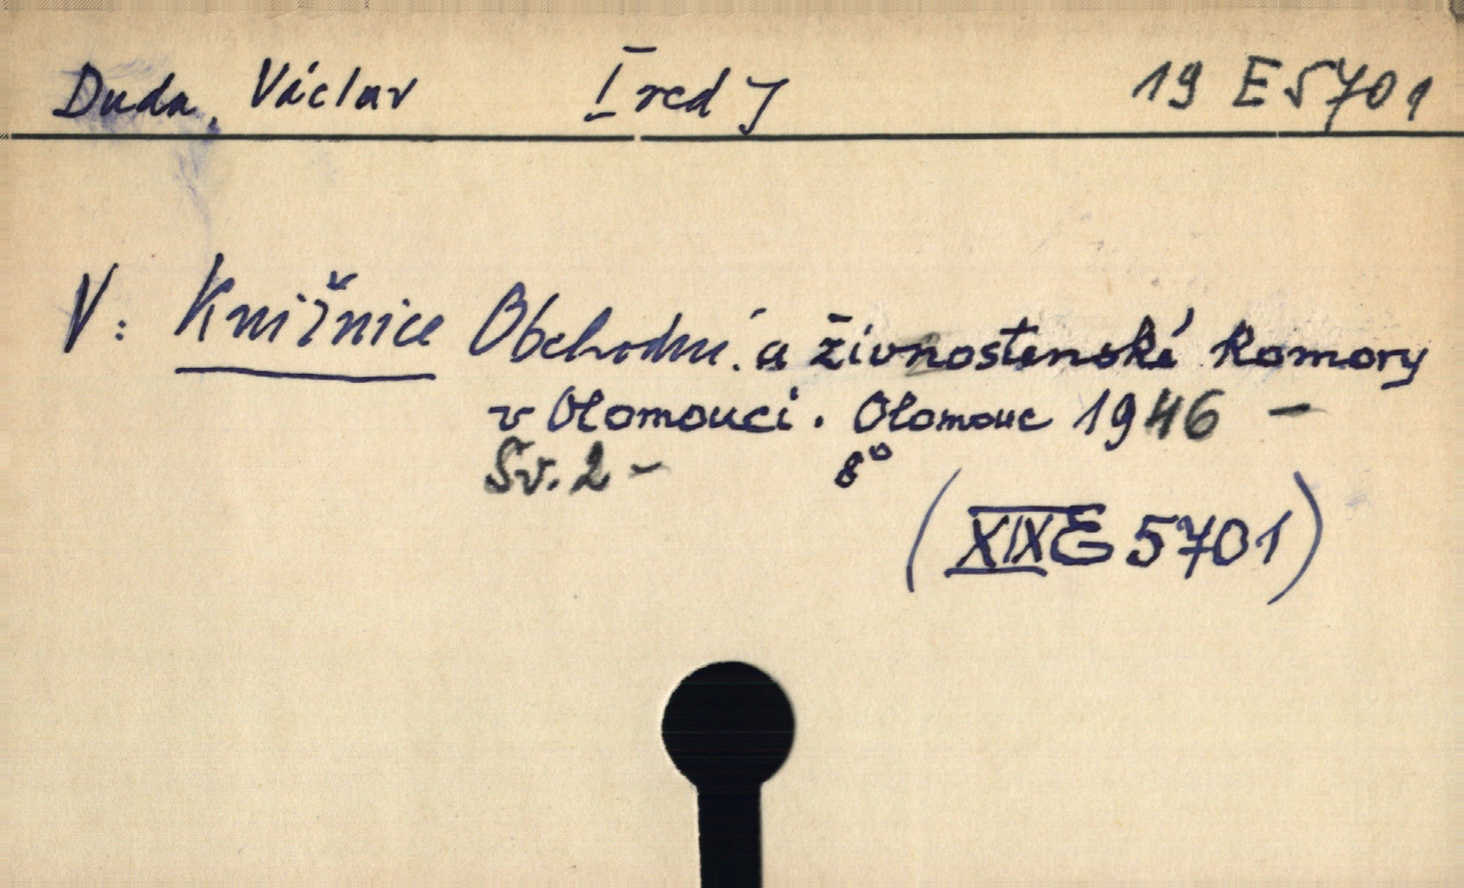 Duda, Václav [red] 19 E 5701
V: Knižnice Obchodní a živnostenské komory
v Olomouci. Olomouc 1946 –
Sv. 2 – 8°
(XIX E 5701)